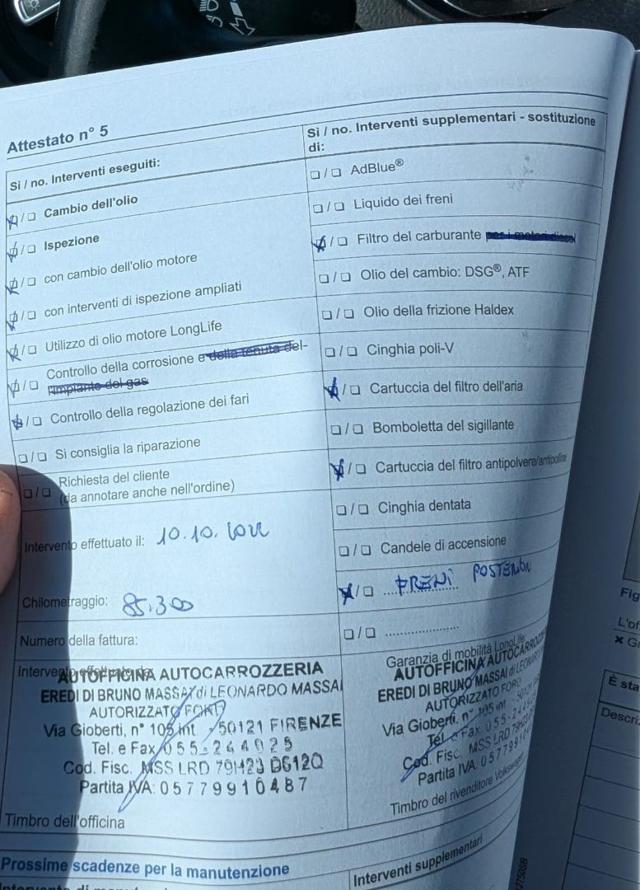 Attestato n° 5
Sì / no. Interventi eseguiti:
☐/☐ Cambio dell'olio
☐/☐ Ispezione
☐/☐ con cambio dell'olio motore
☐/☐ con interventi di ispezione ampliati
☐/☐ Utilizzo di olio motore LongLife
☐/☐ Controllo della corrosione e della tenuta del-
l'impianto del gas
☐/☐ Controllo della regolazione dei fari
☐/☐ Si consiglia la riparazione
☐/☐ Richiesta del cliente
(da annotare anche nell'ordine)
Intervento effettuato il: 10.10.2022
Chilometraggio: 85.300
Numero della fattura:
Intervento effettuato da:
AUTOFFICINA AUTOCARROZZERIA
EREDI DI BRUNO MASSAI di LEONARDO MASSAI
AUTORIZZATO FORD
Via Gioberti, n° 105 int. - 50121 FIRENZE
Tel. e Fax 055-244025
Cod. Fisc. MSS LRD 79H23 D612Q
Partita IVA: 05779910487
Timbro dell'officina
Sì / no. Interventi supplementari - sostituzione
di:
☐/☐ AdBlue®
☐/☐ Liquido dei freni
☐/☐ Filtro del carburante per i motori diesel
☐/☐ Olio del cambio: DSG®, ATF
☐/☐ Olio della frizione Haldex
☐/☐ Cinghia poli-V
☐/☐ Cartuccia del filtro dell'aria
☐/☐ Bomboletta del sigillante
☐/☐ Cartuccia del filtro antipolvere/antipolline
☐/☐ Cinghia dentata
☐/☐ Candele di accensione
☐/☐ FRENI POSTERIORI
☐/☐ ..................
Garanzia di mobilità LongLife
AUTOFFICINA AUTOCARROZZERIA
EREDI DI BRUNO MASSAI di LEONARDO
AUTORIZZATO FORD
Via Gioberti, n° 105 int.
Tel. e Fax 055-244
Cod. Fisc. MSS LRD 79H
Partita IVA: 0577991
Timbro del rivenditore Volkswagen
Prossime scadenze per la manutenzione
Interventi supplementari
Fig
L'of
È sta
Descriz